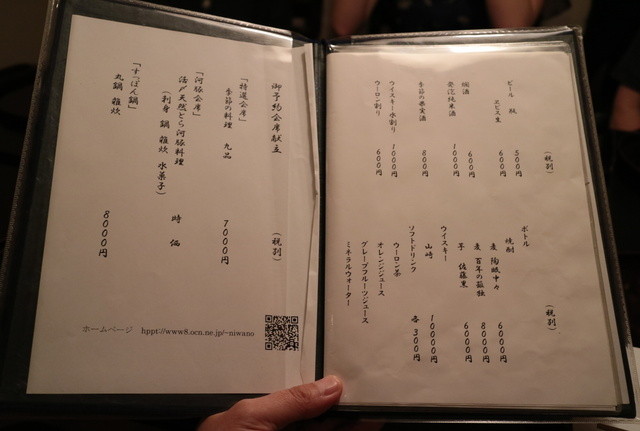 (税別)
ビール 瓶 500円
ヱビス生 600円
燗酒 600円
発泡純米酒 1000円
季節の果実酒 800円
ウイスキー水割り 1000円
ウーロン割り 600円
(税別)
ボトル
焼酎
麦 陶眠中々 6000円
麦 百年の孤独 8000円
芋 佐藤黒 6000円
ウイスキー
山崎 10000円
ソフトドリンク 各300円
ウーロン茶
オレンジジュース
グレープフルーツジュース
ミネラルウォーター
御予約会席献立 (税別)
「特選会席」
季節の料理 九品 7000円
「河豚会席」
活〆天然とら河豚料理 時価
(刺身 鍋 雑炊 水菓子)
「すっぽん鍋」
丸鍋 雑炊 8000円
ホームページ hppt://www8.ocn.ne.jp/~niwano